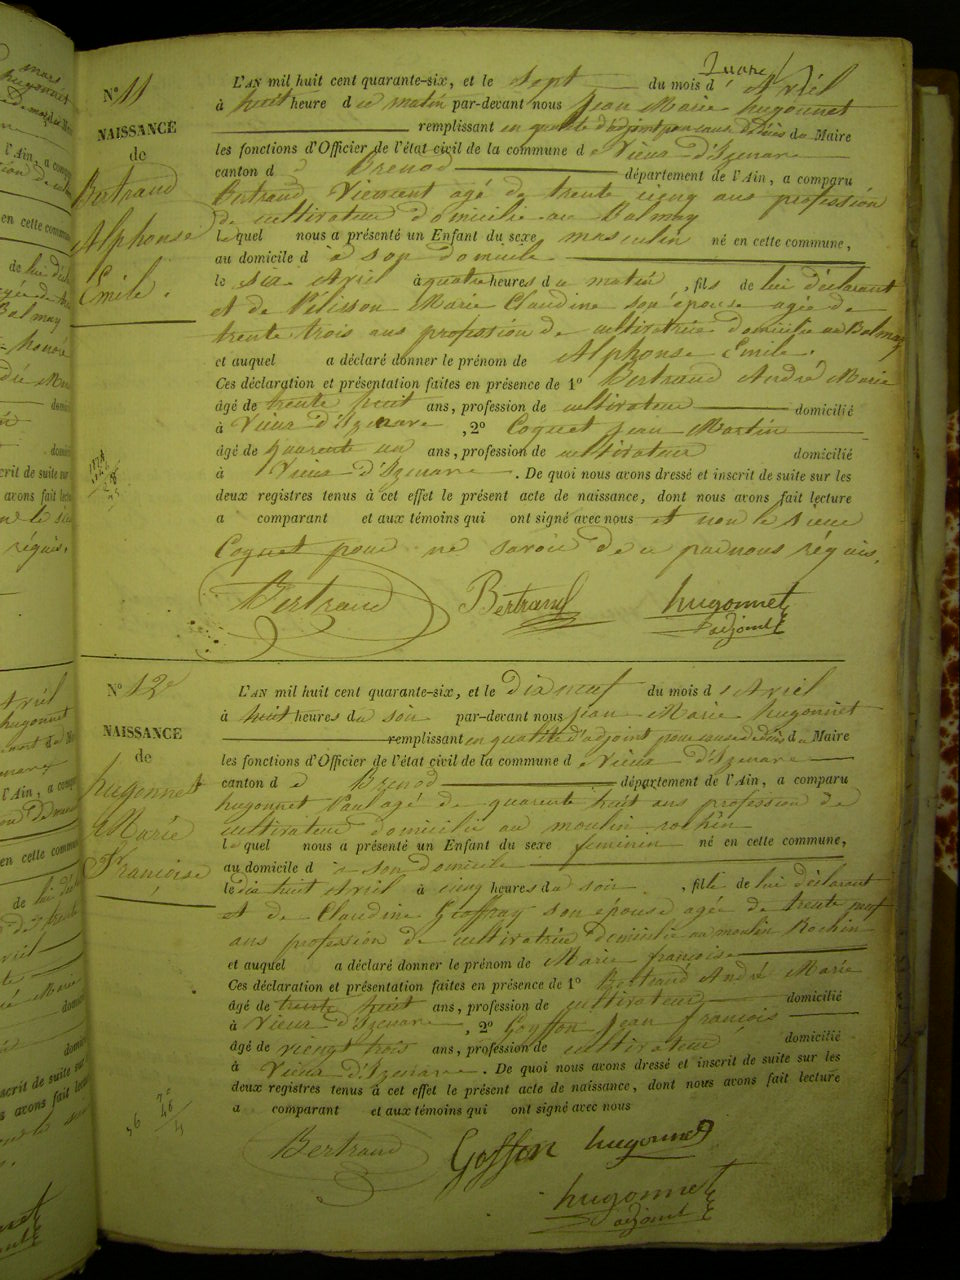 N° 11
NAISSANCE
de
Bertrand
Alphonse
Emile.
L'AN mil huit cent quarante-six, et le sept du mois d'Avril
à huit heure du matin par-devant nous Jean Marie hugonnet
remplissant en qualité d'adjoint pour cause de du Maire
les fonctions d'Officier de l'état civil de la commune de Vieux d'Izenave
canton d Brenod département de l'Ain, a comparu
Bertrand Vincent agé de trente cinq ans profession
de cultivateur domicilié au Balmay
Lequel nous a présenté un Enfant du sexe masculin né en cette commune,
au domicile d à son domicile
le six Avril à quatre heures du matin, fils de lui déclarant
et de Pélisson Marie Claudine son épouse agée de
trente trois ans profession de cultivatrice domicilié au Balmay
et auquel a déclaré donner le prénom de Alphonse Emile.
Ces déclaration et présentation faites en présence de 1° Bertrand André Marie
âgé de trente huit ans, profession de cultivateur domicilié
à Vieux d'Izenave, 2° Coquet Jean Martin
âgé de quarente un ans, profession de cultivateur domicilié
à Vieux d'Izenave. De quoi nous avons dressé et inscrit de suite sur les
deux registres tenus à cet effet le présent acte de naissance, dont nous avons fait lecture
a comparant et aux témoins qui ont signé avec nous et non le sieur
Coquet pour ne savoir de ce par nous réquis.
Bertrand Bertrand hugonnet
adjoint
N° 12
NAISSANCE
de
hugonnet
Marie
Françoise
L'AN mil huit cent quarante-six, et le Dix neuf du mois d'Avril
à huit heures du soir par-devant nous Jean Marie hugonnet
remplissant en qualité d'adjoint pour cause de du Maire
les fonctions d'Officier de l'état civil de la commune de Vieux d'Izenave
canton d Brenod département de l'Ain, a comparu
hugonnet Paul agé de quarente huit ans profession de
cultivateur domicilié au moulin rochin
lequel nous a présenté un Enfant du sexe feminin né en cette commune,
au domicile d à son domicile
le dix huit Avril à cinq heures du soir, fille de lui déclarant
et de Claudine Geoffray son épouse agée de trente neuf
ans profession de cultivatrice domiciliée au moulin Rochin
et auquel a déclaré donner le prénom de Marie françoise
Ces déclaration et présentation faites en présence de 1° Bertrand André Marie
âgé de trente huit ans, profession de cultivateur domicilié
à Vieux d'Izenave, 2° Goffon Jean françois
âgé de viengt trois ans, profession de cultivateur domicilié
à Vieux d'Izenave. De quoi nous avons dressé et inscrit de suite sur les
deux registres tenus à cet effet le présent acte de naissance, dont nous avons fait lecture
a comparant et aux témoins qui ont signé avec nous
Bertrand Goffon hugonnet
hugonnet
adjoint